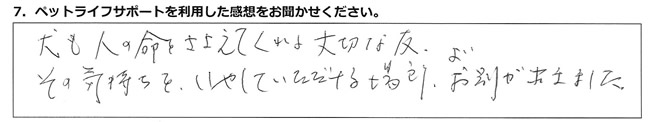 7．ペットライフサポートを利用した感想をお聞かせください。
犬も人の命をささえてくれる大切な友．
その気持ちを、いやしていただける場所、よいお別が出来ました。